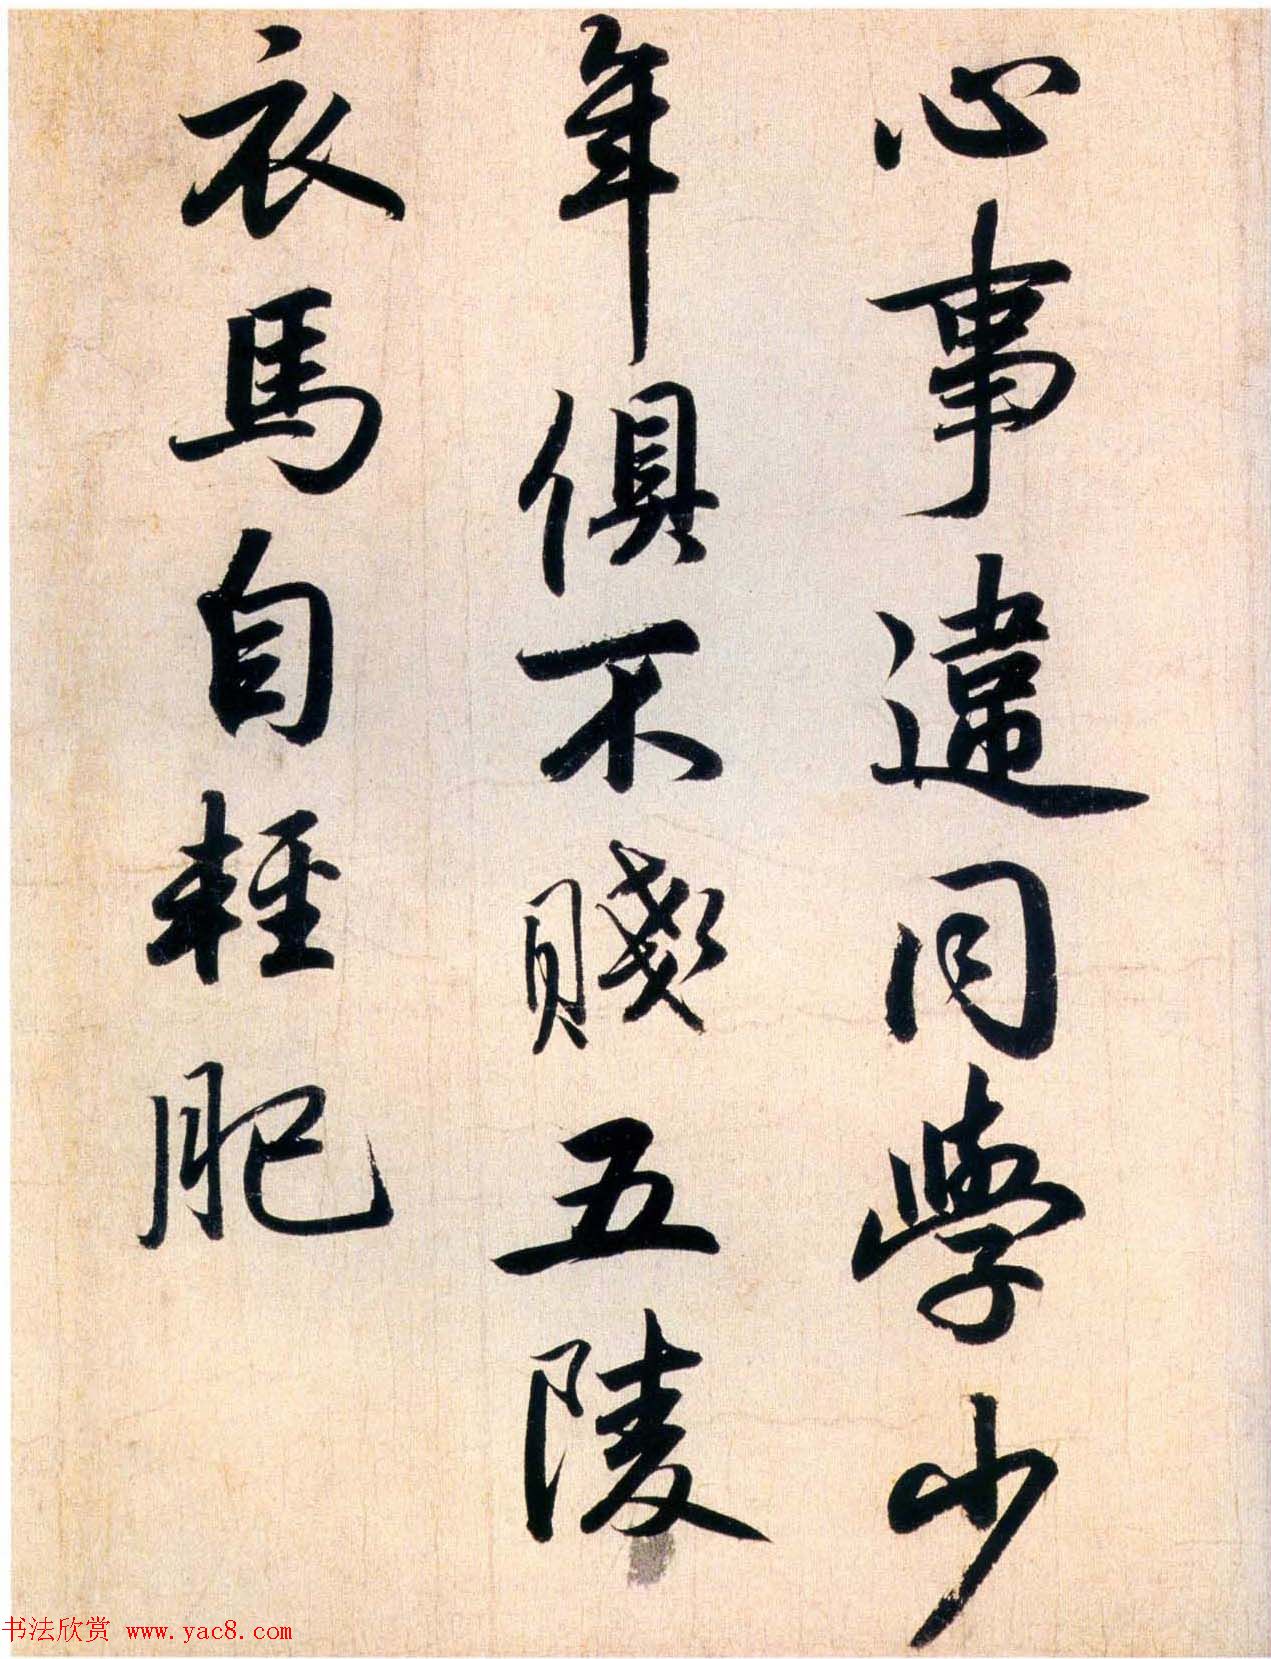 心事違同學少
年俱不賤五陵
衣馬自輕肥
书法欣赏 www.yac8.com